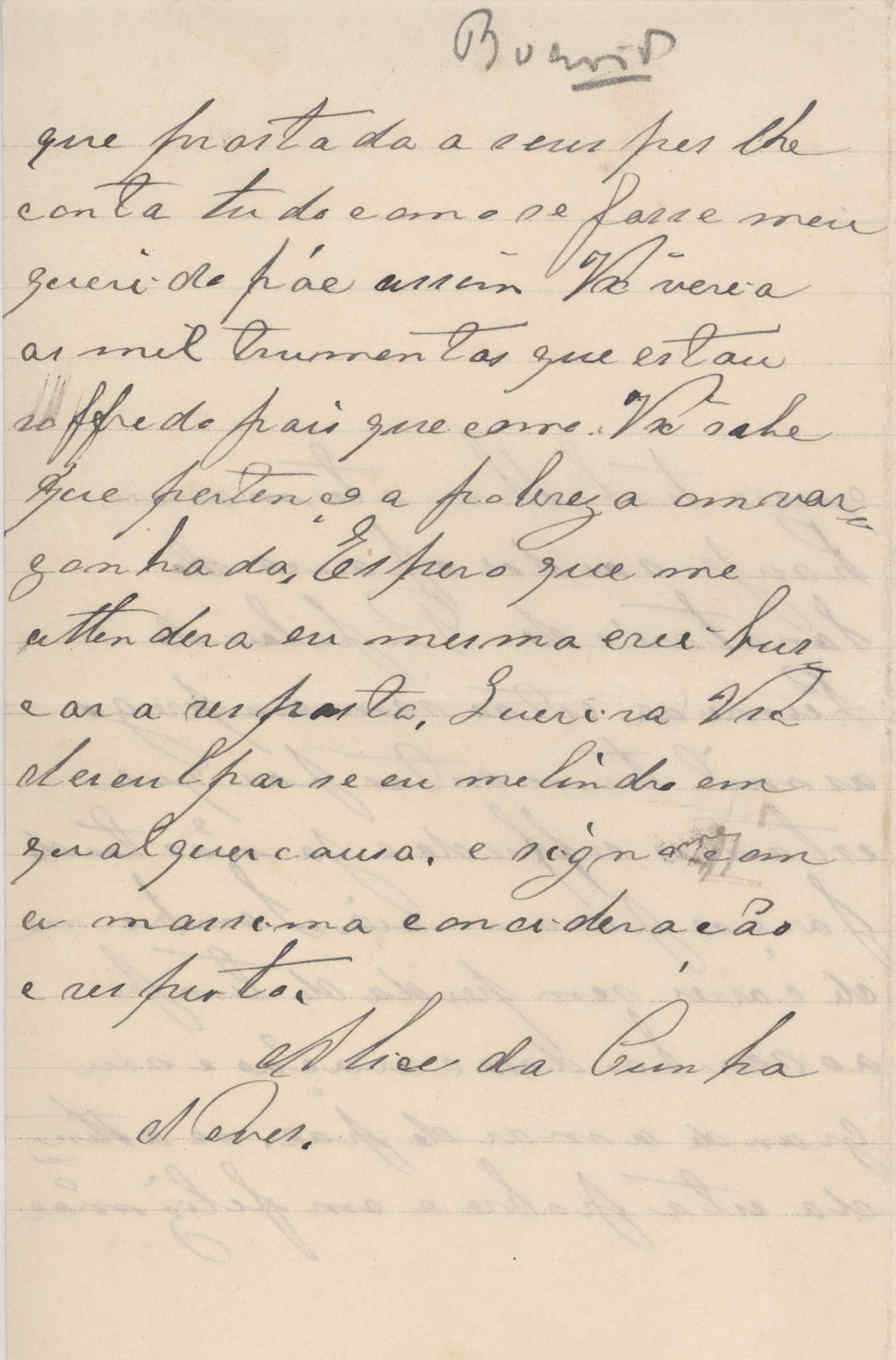 que prostada a seus pes lhe
conta tudo como se fosse meu
queri-do páe assim Vxª verá a
os mil trumentos que estou
soffredo pois que como Vxª sabe
que pertenço a pobreza omvar=
gonhada, Espero que me
attendera eu mesma erei bus=
car a resposta, Queira Vxª
desculpar se eu melindro em
qualquer causa. e signo com
a massima concideração
e respeito.
Alice da Cunha
Neves.